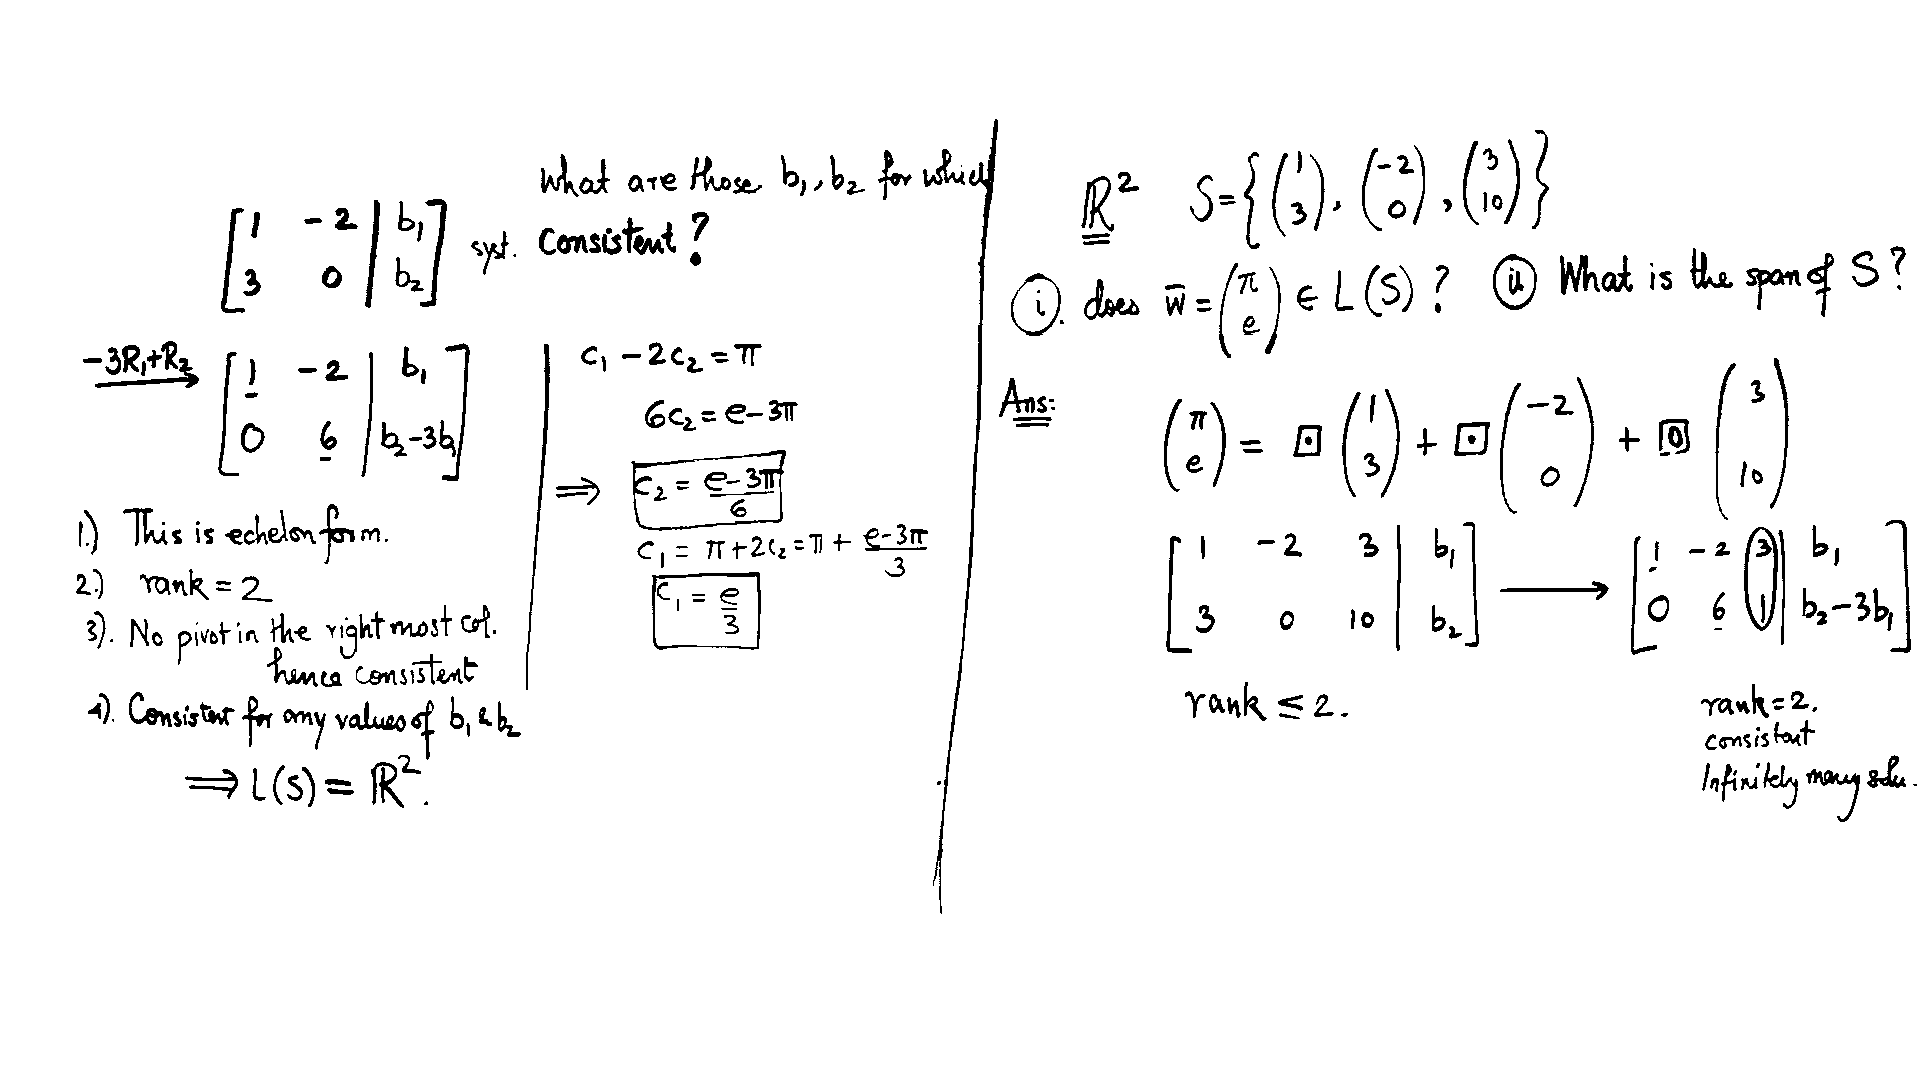 What are those b₁, b₂ for which
[1 -2 | b₁]
[3 0 | b₂]
syst. Consistent?
-3R₁+R₂
[1 -2 | b₁]
[0 6 | b₂-3b₁]
1.) This is echelon form.
2.) rank = 2
3). No pivot in the right most col.
hence consistent
4). Consistent for any values of b₁ & b₂
⟹ L(S) = ℝ².
c₁ - 2c₂ = π
6c₂ = e-3π
⟹ c₂ = (e-3π)/6
c₁ = π+2c₂ = π + (e-3π)/3
c₁ = e/3
ℝ² S = {(1 3), (-2 0), (3 10)}
(i). does w̄ = (π e) ∈ L(S)? (ii) What is the span of S?
Ans:
(π e) = ⊡ (1 3) + ⊡ (-2 0) + [0] (3 10)
[1 -2 3 | b₁]
[3 0 10 | b₂]
⟶
[1 -2 3 | b₁]
[0 6 1 | b₂-3b₁]
rank ≤ 2.
rank = 2.
consistent
Infinitely many solu.